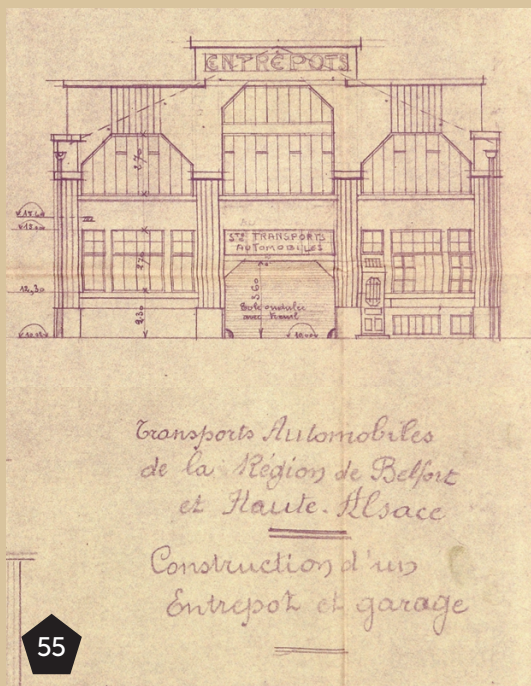 ENTREPÔTS
2,70
Sté TRANSPORTS
AUTOMOBILES
2,70
12,30
3,60
2,30
Tôle ondulée
Transports Automobiles
de la Région de Belfort
et Haute-Alsace
Construction d'un
Entrepot et garage
55